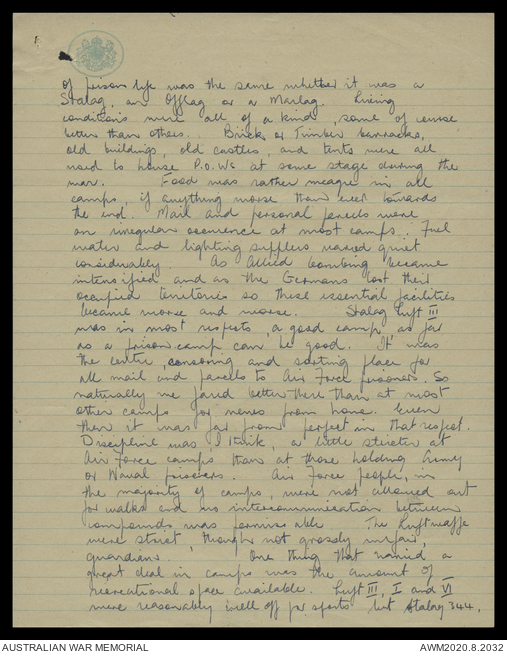 of prison life was the same whether it was a
Stalag, an Offlag or a Marlag. Living
conditions were all of a kind, some of course
better than others. Brick or Timber barracks,
old buildings, old castles, and tents were all
used to house P.O.Ws at some stage during the
war. Food was rather meagre in all
camps, if anything worse than ever towards
the end. Mail and personal parcels were
an irregular occurence at most camps. Fuel
water and lighting supplies varied quiet
considerably. As Allied bombing became
intensified and as the Germans lost their
occupied territories so these essential facilities
became worse and worse. Stalag Luft III
was in most respects, a good camp as far
as a prison camp can be good. It was
the centre, censoring and sorting place for
all mail and parcels to Air Force prisoners. So
naturally we fared better there than at most
other camps for news from home. Even
then it was far from perfect in that respect.
Discipline was, I think, a little stricter at
Air Force camps than at those holding Army
or Naval prisoners. Air Force people, in
the majority of camps, were not allowed out
for walks and no intercommunication between
compounds was permissable. The Luftwaffe
were strict, though not grossly unfair,
guardians. One thing that varied a
great deal in camps was the amount of
recreational space available. Luft III, I and VI
were reasonably well off for sports but Stalag 344,
AUSTRALIAN WAR MEMORIAL
AWM2020.8.2032